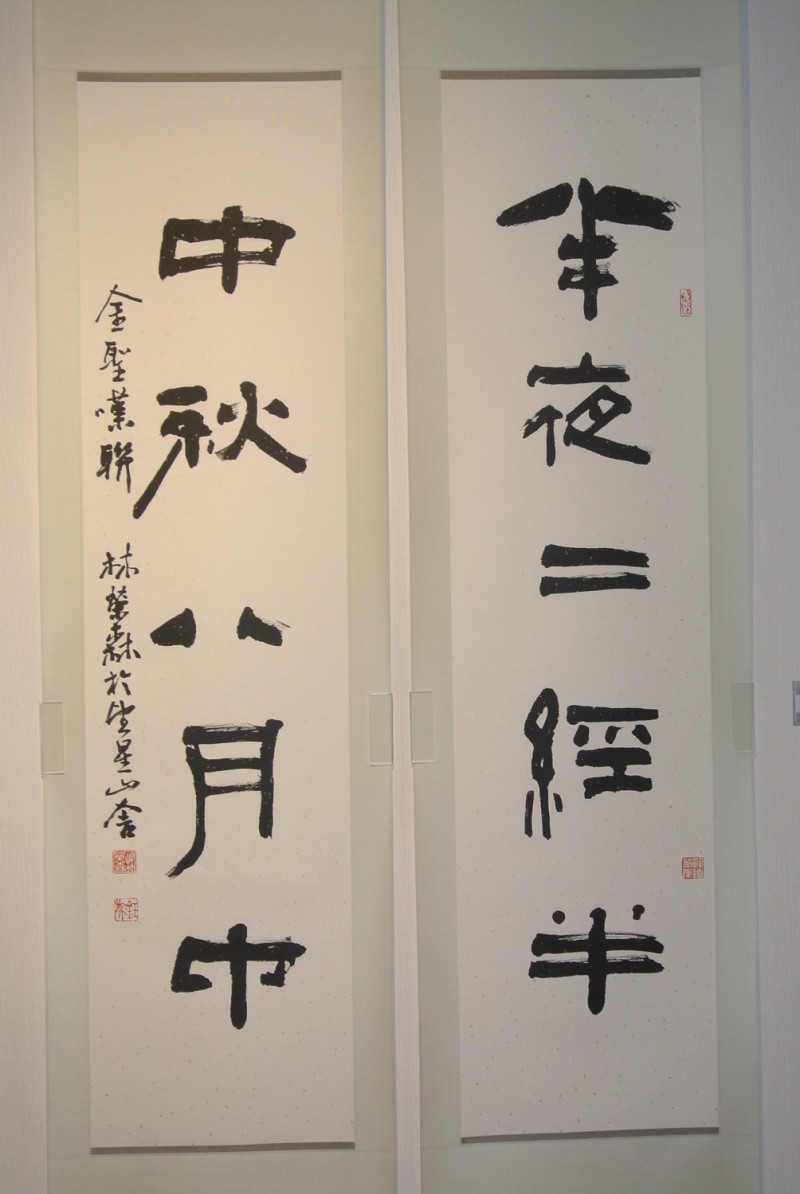 半夜二經半
中秋八月中
金聖嘆聯 林榮森於星山舍